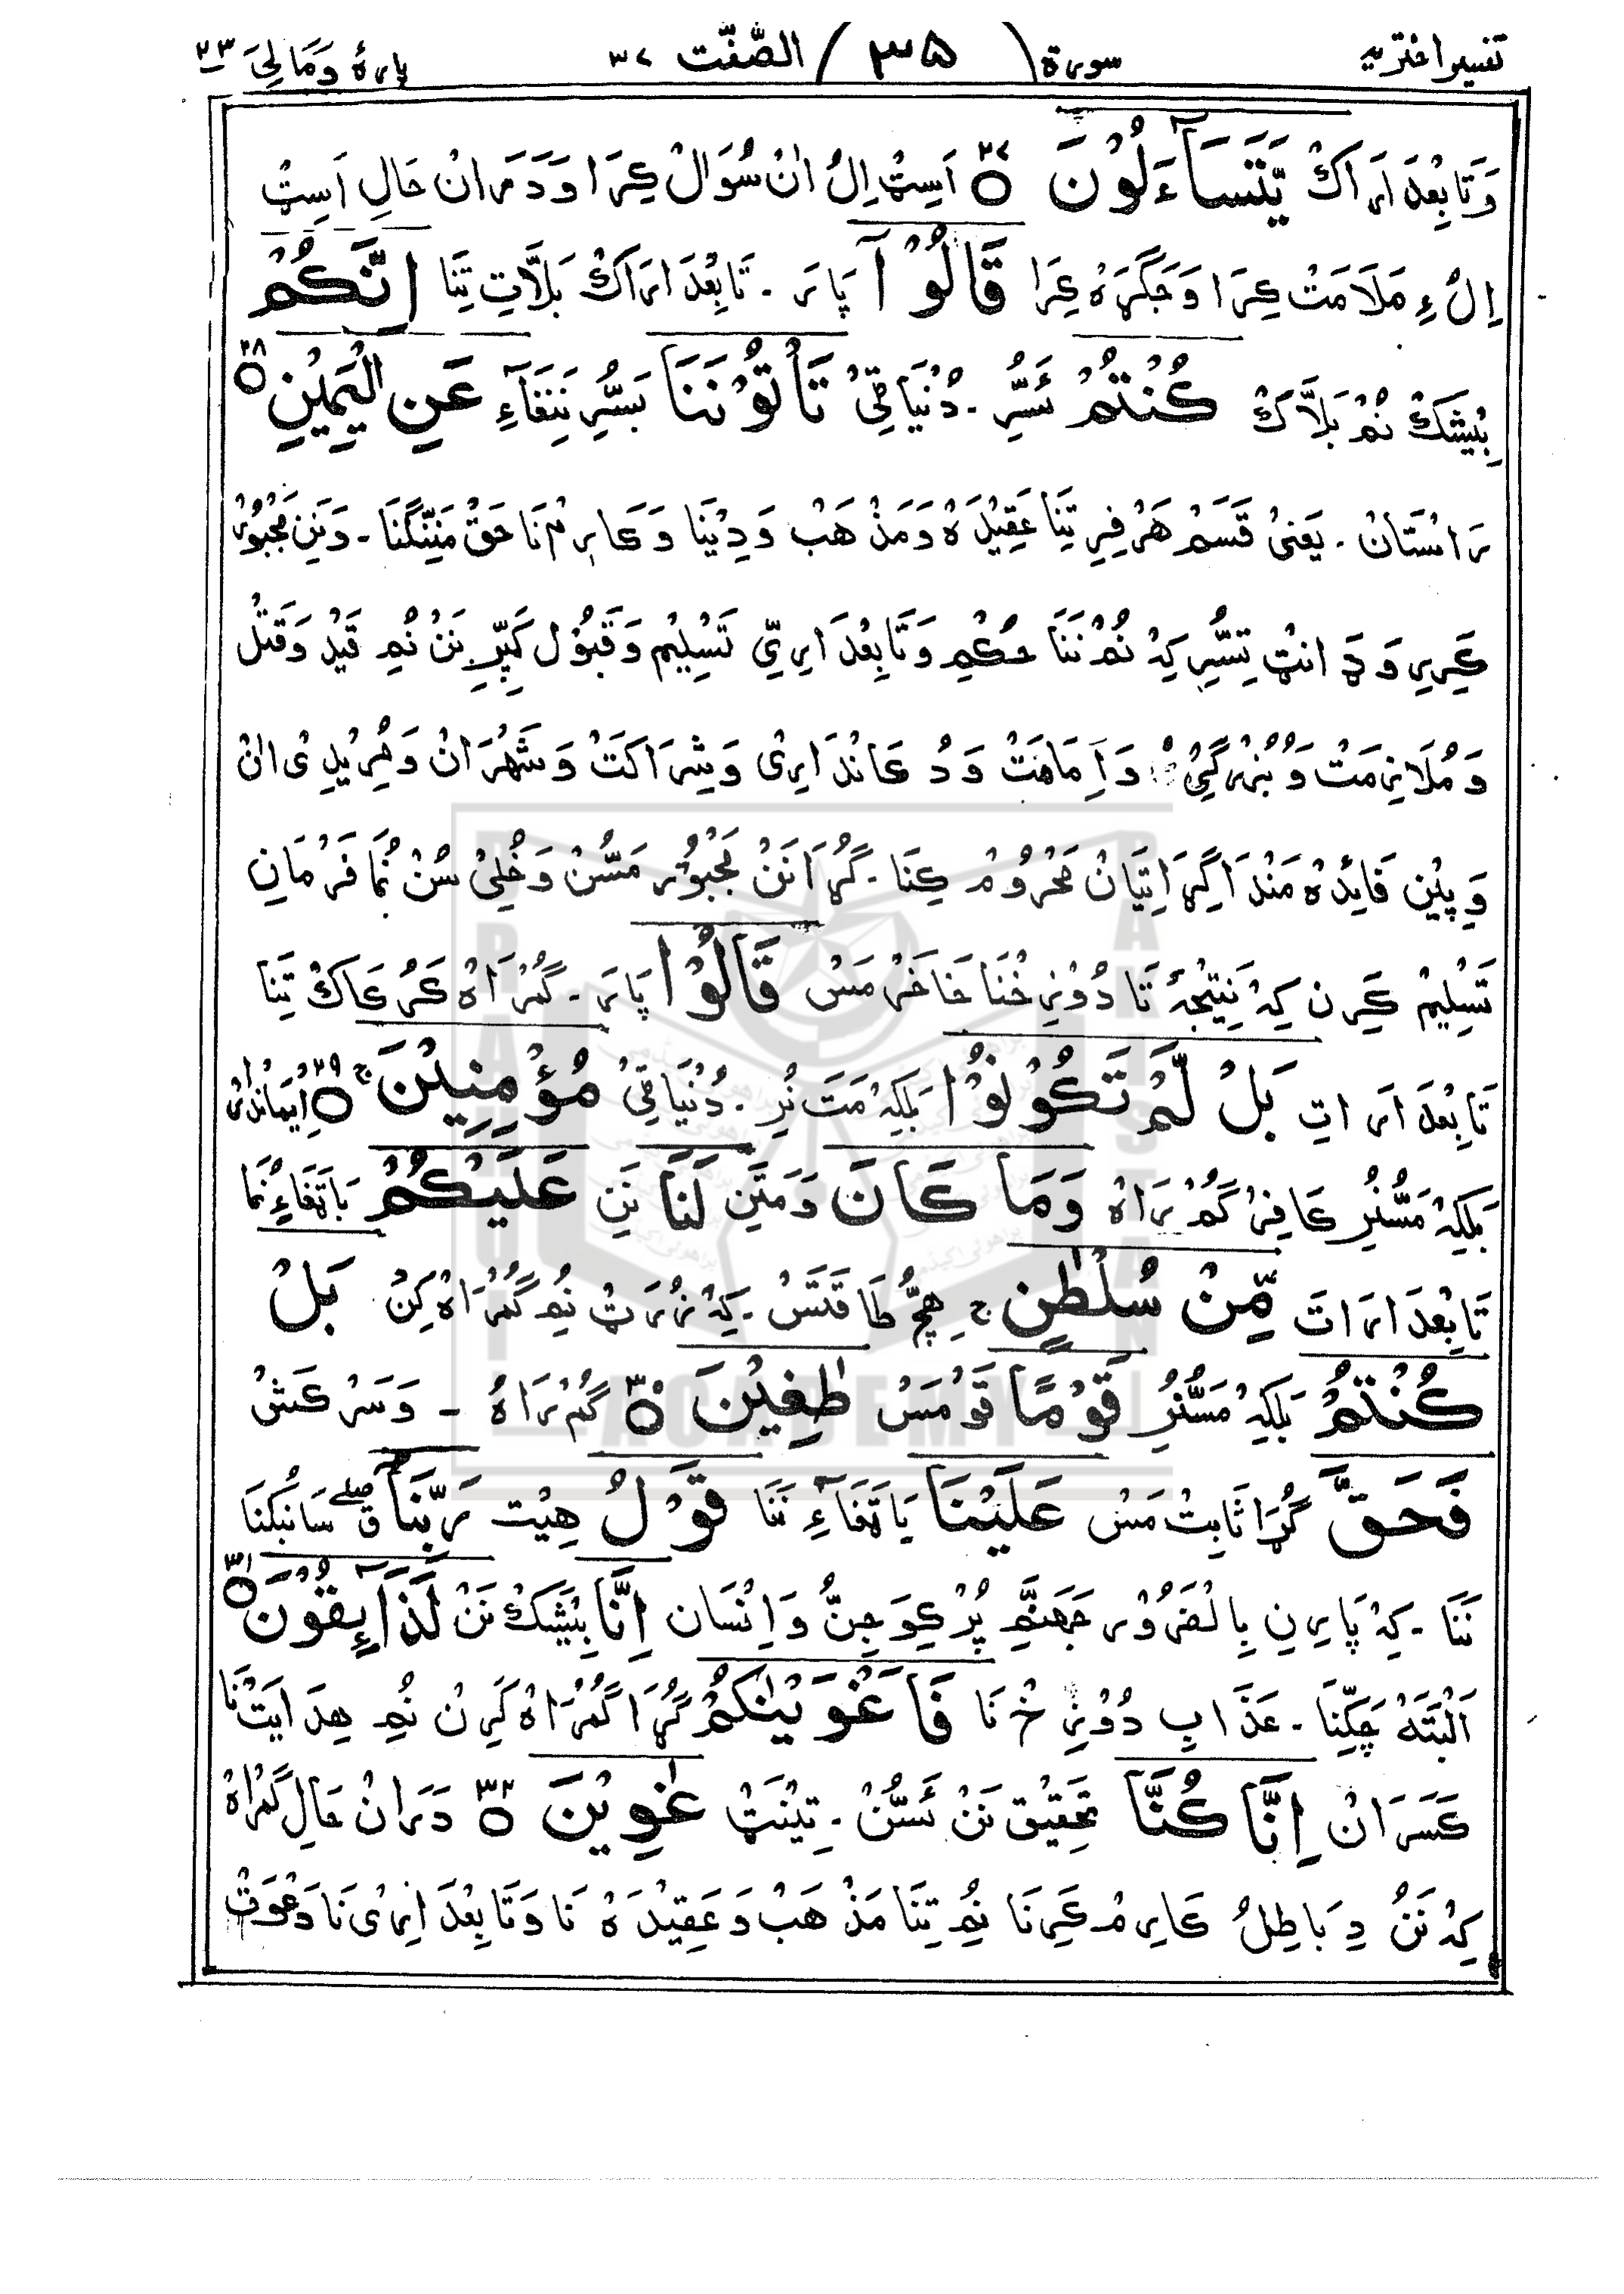 تفسیر اختریہ سورة (۳۵) الصّٰفّٰت ۳۷ پارۂ وَمَا لِیَ ۲۳
وَتَابِعْدَارَاکْ یَّتَسَآءَلُوْنَ ۲۷ اَسِٹْ اِلُ اٰنْ سُوَالْ کِرَا وَ دَرَانْ حَالِ اَسِٹْ
اِلُ ءِ مَلَامَتْ کِرَا وَ جَگَرَہْ کِرَا قَالُوْۤا پَارَ ۔ تَابِعْدَارَاکْ بَلَّاتِ تِنَا اِنَّکُمْ
بِیْشَکْ نُمْ بَلَّاکْ کُنْتُمْ ئَسُّرِ ۔ دُنْیَاقِیْ تَاْتُوْنَنَا بَسُّرِ نَنَغَاءِ عَنِ الْیَمِیْنِ ۲۸
رَاسْتَانْ ۔ یَعْنِیْ قَسَمْ ھَرْفِرِ تِنَا عَقِیْدَہْ وَ مَذْھَبْ وَ دِیْنَا وَ کَارِمْ نَا حَقْ مَنِّنْگَنَا ۔ وَ نَنِ مَجْبُوْر
کَرِرِ وَ دَ انْتْ تِسُّرِ کِہْ نُمْ نَنَا حُکْمِ وَ تَابِعْدَارِیِّ تَسْلِیْم وَ قَبُوْل کَبِّرِ نَنْ نُمِ قَیْد وَ قَتْل
وَ مُلَازِمَتْ وَ بُزُرْگِیْ وَ اِمَامَتْ وَ دُکَانْدَارِیْ وَ شِرَاکَتْ وَ شَھْرَانْ وَ ھُرِیْدِیْ اٰنْ
وَ پِیْنِ فَائِدَہْ مَنْدَا گِرَاتِیَانْ مَحْرُوْمْ کِنَا ۔ گُرَا نَنْ مَجْبُوْر مَسُّنْ وَ خُلِیْسُنْ نُمَا فَرْمَانِ
تَسْلِیْمْ کَرِنْ کِہْ نَتِیْجَہْ تَا دُوْزِخْنَا خَاخَرْ مَسْ قَالُوْا پَارَ ۔ گُمْرَاہْ کَرُکَاکْ تِنَا
تَابِعْدَارَاتِ بَلْ لَّمْ تَکُوْنُوْا بَلکِہْ مَتَ نُرِ ۔ دُنْیَاقِیْ مُؤْمِنِیْنَ ج ۲۹ اِیْمَانْدَارْ
بَلْکِہْ مَسُّنُرِ کَافِرْ گُمْرَاہْ وَمَا کَانَ وَ مَتَنِ لَنَا نَنِ عَلَیْکُمْ بَاتَغَاءِ نُمَا
تَابِعْدَارَاتَ مِّنْ سُلْطٰنٍ ج ھِچُّ طَاقَتَسْ ۔ کِہْ زُرَتْ نُمِ گُمْرَاہْ کِنْ بَلْ
کُنْتُمْ بَلکِہْ مَسُّنُرِ قَوْمًا قَوْمَسْ طٰغِیْنَ ۳۰ گُمْرَاہْ ۔ وَ سَرْکَشْ
فَحَقَّ گُرَا ثَابِتْ مَسْ عَلَیْنَا بَاتَغَاءِ نَنَا قَوْلُ ھِیْت رَبِّنَاۤ ق صلے سَائِنْکِنَا
نَنَا ۔ کِہْ پَارِنِ بِالْضَرُوْر جَھَنَّمِ پُرْ کِوَ جِنُّ وَ اِنْسَان اِنَّا بِیْشَکْ نَنْ لَذَآئِقُوْنَ ۳۱
اَلْبَتَہ چَکِّنَا ۔ عَذَابِ دُوْزِخْ نَا فَاَغْوَیْنٰکُمْ گُرَا گُمْرَاہْ کَرِنْ نُمِ ھِدَایَتْ نَا
کَسَرَانْ اِنَّا کُنَّا تَحْقِیْق نَنْ ئَسُّنْ ۔ تِیْنَتْ غٰوِیْنَ ۳۲ دَرَانْ حَالِ گُمْرَاہْ
کِہْ نَنُ دِ بَاطِلُ کَارِمْ کَرِنَا نُمِ تِنَا مَذْھَبْ وَ عَقِیْدَہْ نَا وَ تَابِعْدَارِیْ نَا دَعْوَتْ